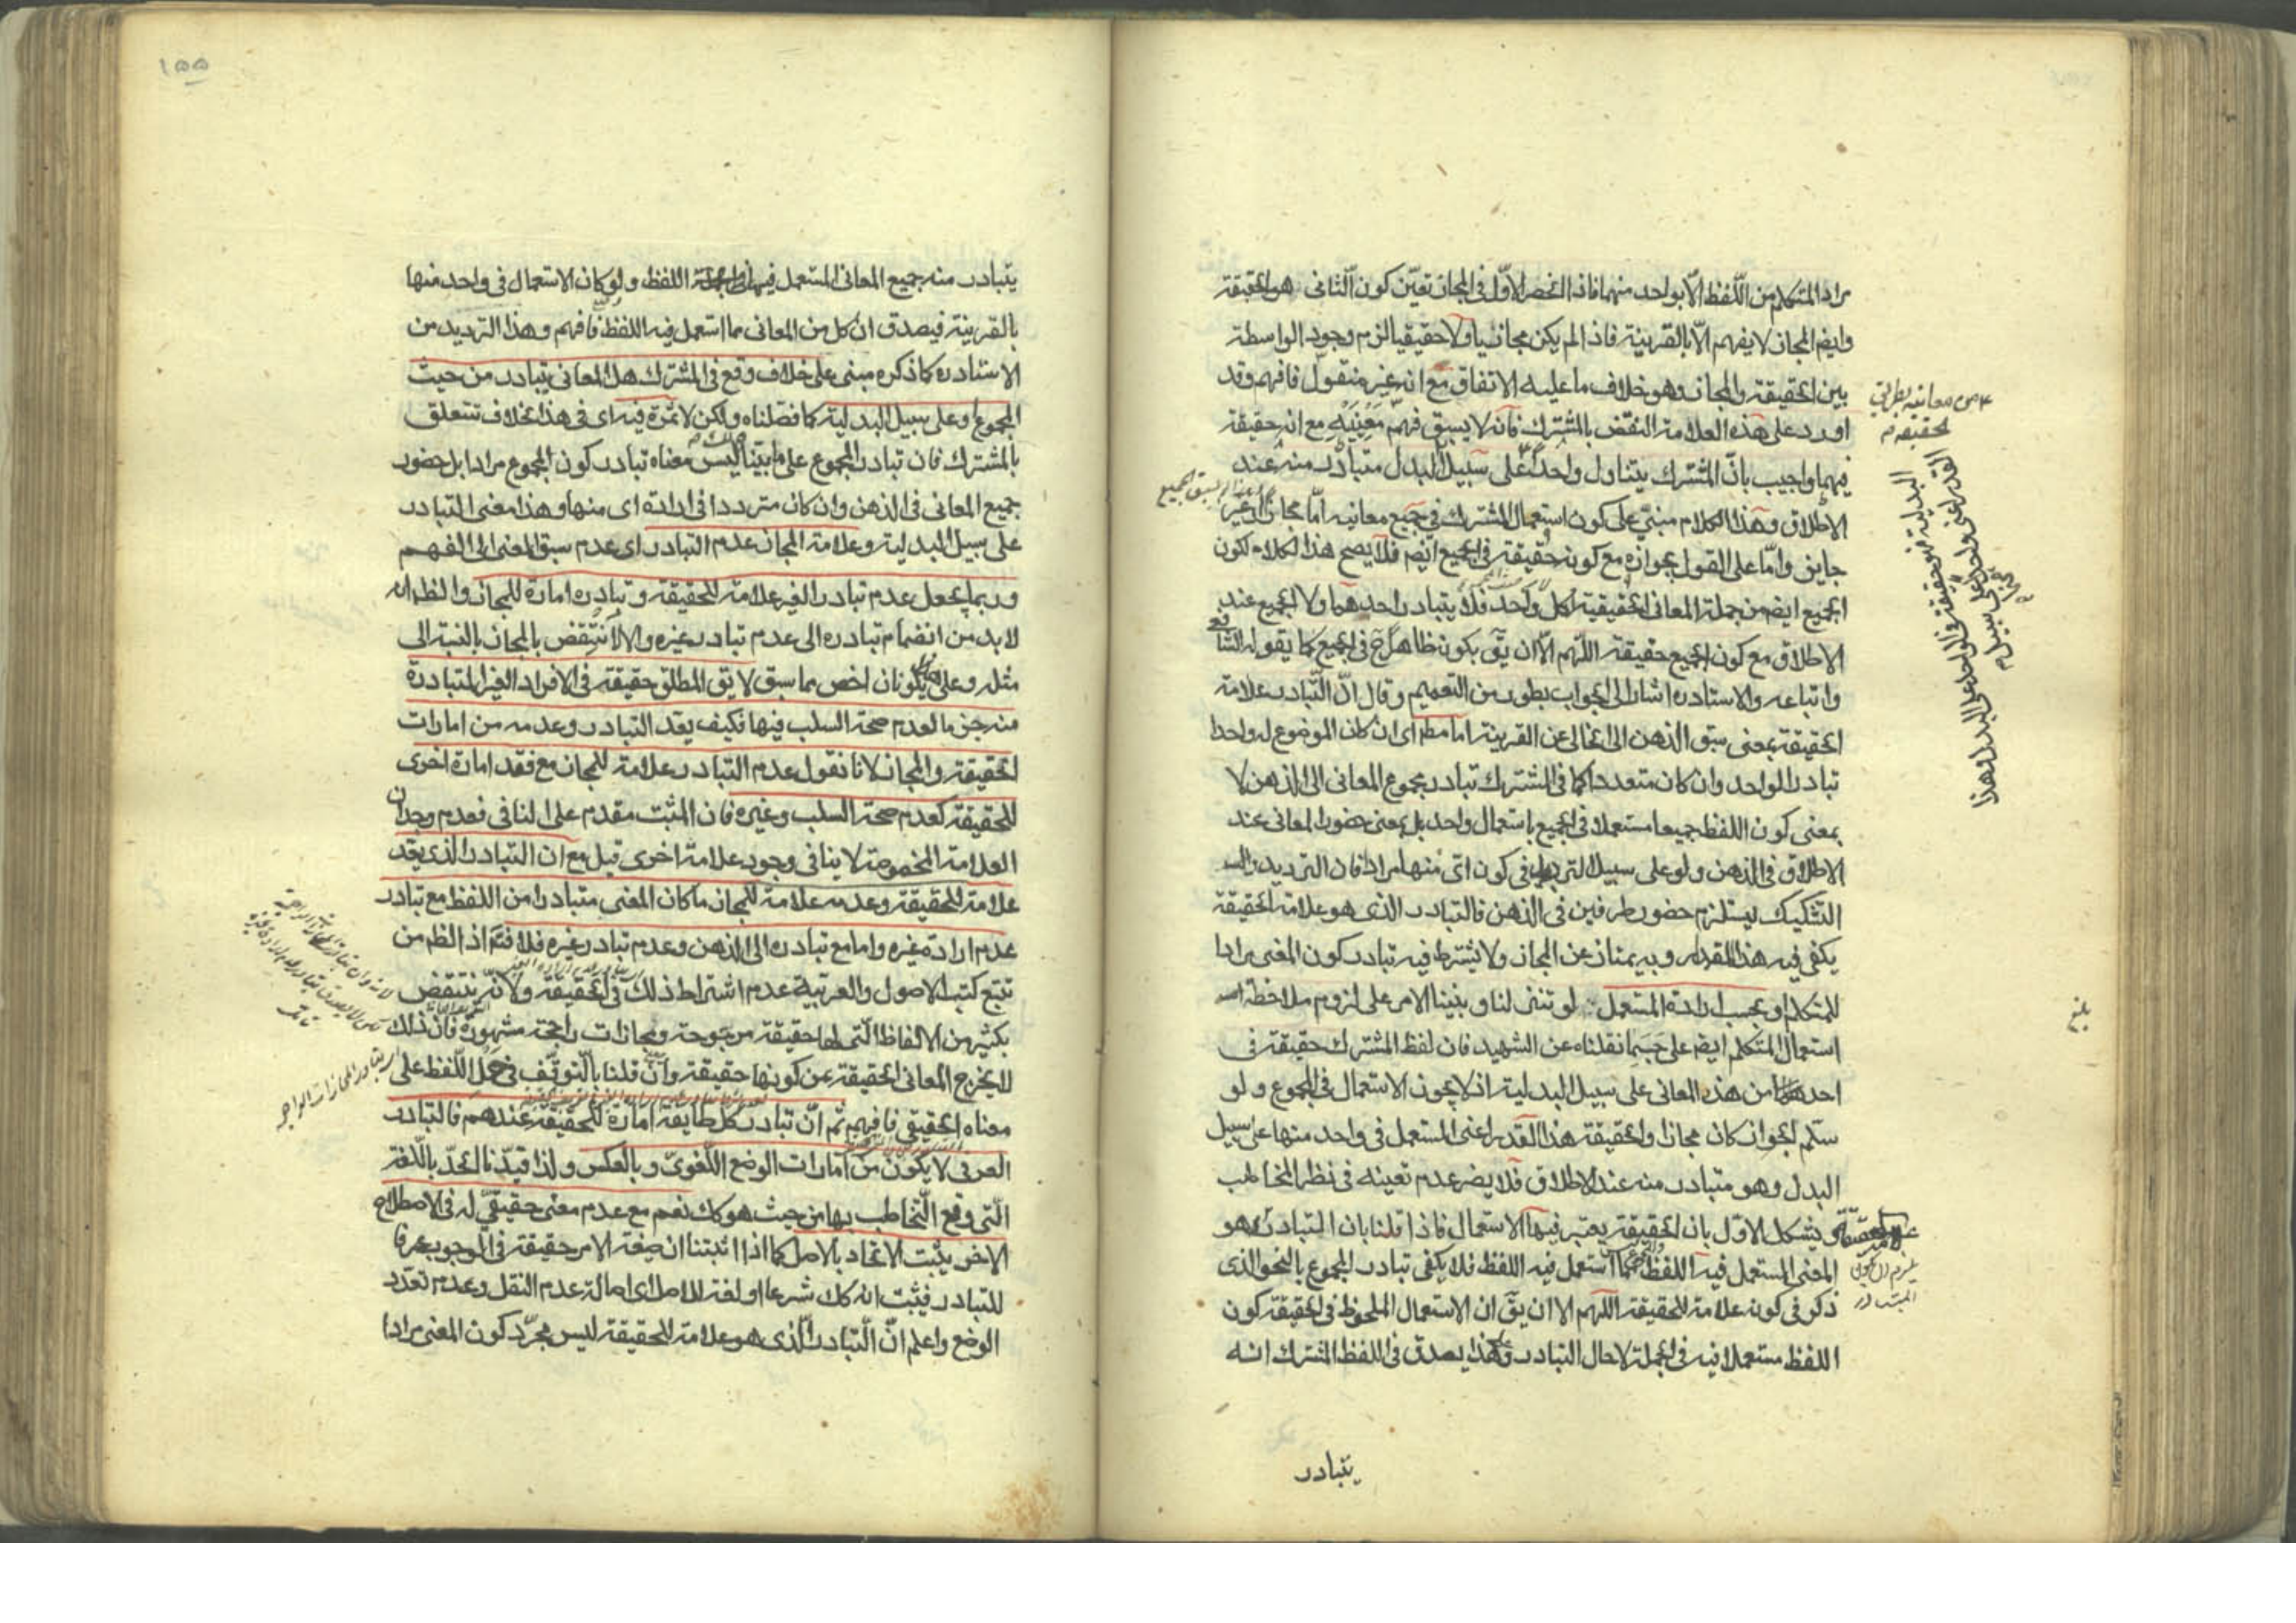 مراد المتكلم من اللّفظ الّا بواحد منهما فاذا انحصر الاوّل فى المجاز تعيّن كون الثانى هو الحقيقة
وايضا المجاز لا يفهم الّا بالقرينة فاذا لم يكن مجازيا ولا حقيقيا لزم وجود الواسطة
بين الحقيقة والمجاز وهو خلاف ما عليه الاتفاق مع انه غير منقول فافهم وقد
اورد على هذه العلامة النقض بالمشترك فانه لا يسبق فهم معنييه مع انه حقيقة
فيهما واجيب بانّ المشترك يتناول واحدا على سبيل البدل متبادر منه عند
الاطلاق وهذا الكلام مبنىّ على كون استعمال المشترك فى جميع معانيه امّا مجاز او غير
جايز وامّا على القول بجوازه مع كونه حقيقة فى الجميع ايضم فلا يصح هذا الكلام لكون
الجميع ايضم من جملة المعانى الحقيقية لكل واحد فلا يتبادر احدهما ولا الجميع عند
الاطلاق مع كون الجميع حقيقة اللّهم الّا ان يقّ بكونه ظاهرا ح فى الجميع كما يقوله الشافعى
واتباعه والاستاد ره اشار الى الجواب بطور من التعميم وقال انّ التبادر علامة
الحقيقة بمعنى سبق الذهن الى الخالى عن القرينة اما مطم اى ان كان الموضوع له واحدا
تبادر الواحد وان كان متعددا كما فى المشترك تبادر مجموع المعانى الى الذهن لا
بمعنى كون اللفظ جميعا مستعملا فى الجميع باستعمال واحد بل بمعنى حضور المعانى عند
الاطلاق فى الذهن ولو على سبيل الترديد فى كون اىّ منها مراد فان الترديد
التشكيك يستلزم حضور طرفين فى الذهن فالتبادر الذى هو علامة الحقيقة
يكفى فيه هذا المقدار وبه يمتاز عن المجاز ولا يشترط فيه تبادر كون المعنى مرادا
للمتكلم او بحسب ارادة المستعمل لو تنزلنا وبنينا الامر على لزوم ملاحظة
استعمال المتكلم ايضم على حسبما نقلناه عن الشهيد فان لفظ المشترك حقيقة فى
احد من هذه المعانى على سبيل البدلية اذ لا يجوز الاستعمال فى المجموع ولو
سلم الجواز كان مجازا والحقيقة هذا القدر اعنى المستعمل فى واحد منها على سبيل
البدل وهو متبادر منه عند الاطلاق فلا يضر عدم تعينه فى نظر المخاطب
يشكل الاوّل بان الحقيقة يعتبر فيها الاستعمال فاذا قلنا بان التبادر هو
المعنى المستعمل فيه اللفظ استعمل فيه اللفظ فلا يكفى تبادر المجموع بالنحو الذى
ذكر فى كونه علامة للحقيقة اللّهم الا ان يقّ ان الاستعمال الملحوظ فى الحقيقة كون
اللفظ مستعملا فيه فى الجملة لا حال التبادر وهكذا يصدق فى اللفظ المشترك انه
يتبادر
القدر اعنى واحدا على سبيل
البدلية فهو حقيقة فى الواحد على البدل وهذا
بلغ
يلزم ان يكون
المتبادر
١٥٥
يتبادر منه جميع المعانى المستعمل فيها فى الجملة اللفظ ولو كان الاستعمال فى واحد منها
بالقرينة فيصدق ان كل من المعانى مما استعمل فيه اللفظ فافهم وهذا الترديد من
الاستاد ره كما ذكره مبنى على خلاف وقع فى المشترك هل المعانى تبادر من حيث
المجموع او على سبيل البدلية كما فصّلناه ولكن لا ثمرة فيه اى فى هذا الخلاف تتعلق
بالمشترك فان تبادر المجموع على ما بيّنا ليس معناه تبادر كون المجموع مرادا بل حضور
جميع المعانى فى الذهن وان كان مترددا فى ارادة اى منها وهذا معنى التبادر
على سبيل البدلية وعلامة المجاز عدم التبادر اى عدم سبق المعنى الى الفهم
وربما يجعل عدم تبادر الغير علامة للحقيقة وتبادره امارة للمجاز والظم انه
لا بد من انضمام تبادره الى عدم تبادر غيره والا لانتقض بالمجاز بالنسبة الى
مثله وعلى يكونان اخص مما سبق لا يق المطلق حقيقة فى الافراد الغير المتبادرة
منه جزما لعدم صحة السلب فيها فكيف يعد التبادر وعدمه من امارات
الحقيقة والمجاز لانا نقول عدم التبادر علامة للمجاز مع فقد امارة اخرى
للحقيقة كعدم صحة السلب وغيره فان المثبت مقدم على النافى فعدم وجدان
العلامة المخصوصة لا ينافى وجود علامة اخرى قيل مع ان التبادر الذى يعد
علامة للحقيقة وعدمه علامة للمجاز ما كان المعنى متبادرا من اللفظ مع تبادر
عدم ارادة غيره واما مع تبادره الى الذهن وعدم تبادر غيره فلا فتم اذ الظم من
تتبع كتب الاصول والعربية عدم اشتراط ذلك فى الحقيقة ولانّه ينتقض
بكثير من الالفاظ الّتى لها حقيقة مرجوحة ومجازات راجحة مشهورة فان ذلك
لا يخرج المعانى الحقيقة عن كونها حقيقة وان قلنا بالتوقف فى حمل اللّفظ على
معناه الحقيقى فافهم ثم انّ تبادر كل طايفة امارة للحقيقة عندهم فالتبادر
العرفى لا يكون من امارات الوضع اللّغوىّ وبالعكس ولذا قيّدنا الحدّ باللّغة
الّتى وقع التخاطب بها من حيث هو كك نعم مع عدم معنى حقيقىّ له فى الاصطلاح
الاخر يثبت الاتحاد بالاصل كما اذا اثبتنا ان صيغة الامر حقيقة فى الوجوب عرفا
للتبادر فيثبت انه كك شرعا او لغة للاصل اى اصالة عدم النقل وعدم تعدّد
الوضع واعلم انّ التبادر الّذى هو علامة الحقيقة ليس مجرّد كون المعنى مرادا